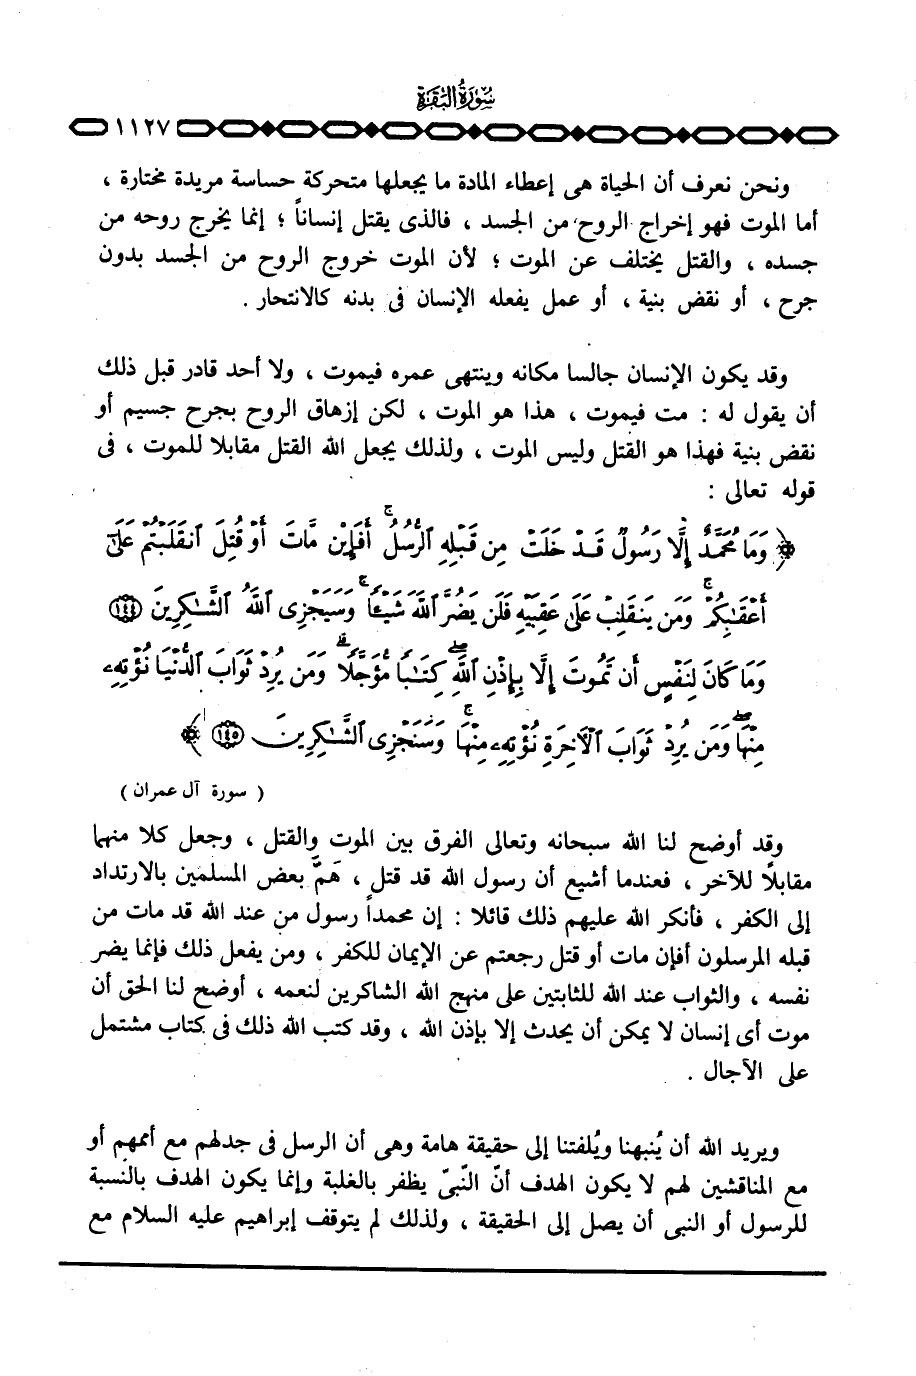 سُورَةُ البَقَرَة
١١٢٧
ونحن نعرف أن الحياة هى إعطاء المادة ما يجعلها متحركة حساسة مريدة مختارة ،
أما الموت فهو إخراج الروح من الجسد ، فالذى يقتل إنساناً ؛ إنما يخرج روحه من
جسده ، والقتل يختلف عن الموت ؛ لأن الموت خروج الروح من الجسد بدون
جرح ، أو نقض بنية ، أو عمل يفعله الإنسان فى بدنه كالانتحار .
وقد يكون الإنسان جالسا مكانه وينتهى عمره فيموت ، ولا أحد قادر قبل ذلك
أن يقول له : مت فيموت ، هذا هو الموت ، لكن إزهاق الروح بجرح جسيم أو
نقض بنية فهذا هو القتل وليس الموت ، ولذلك يجعل الله القتل مقابلا للموت ، فى
قوله تعالى :
﴿ وَمَا مُحَمَّدٌ إِلَّا رَسُولٌ قَدْ خَلَتْ مِن قَبْلِهِ ٱلرُّسُلُ ۚ أَفَإِيْن مَّاتَ أَوْ قُتِلَ ٱنقَلَبْتُمْ عَلَىٰٓ
أَعْقَٰبِكُمْ ۚ وَمَن يَنقَلِبْ عَلَىٰ عَقِبَيْهِ فَلَن يَضُرَّ ٱللَّهَ شَيْـًٔا ۗ وَسَيَجْزِى ٱللَّهُ ٱلشَّٰكِرِينَ ﴿١٤٤﴾
وَمَا كَانَ لِنَفْسٍ أَن تَمُوتَ إِلَّا بِإِذْنِ ٱللَّهِ كِتَٰبًا مُّؤَجَّلًا ۗ وَمَن يُرِدْ ثَوَابَ ٱلدُّنْيَا نُؤْتِهِۦ
مِنْهَا وَمَن يُرِدْ ثَوَابَ ٱلْـَٔاخِرَةِ نُؤْتِهِۦ مِنْهَا ۚ وَسَنَجْزِى ٱلشَّٰكِرِينَ ﴿١٤٥﴾ ﴾
( سورة آل عمران )
وقد أوضح لنا الله سبحانه وتعالى الفرق بين الموت والقتل ، وجعل كلا منهما
مقابلاً للآخر ، فعندما أشيع أن رسول الله قد قتل ، هَمَّ بعض المسلمين بالارتداد
إلى الكفر ، فأنكر الله عليهم ذلك قائلا : إن محمداً رسول من عند الله قد مات من
قبله المرسلون أفإن مات أو قتل رجعتم عن الإيمان للكفر ، ومن يفعل ذلك فإنما يضر
نفسه ، والثواب عند الله للثابتين على منهج الله الشاكرين لنعمه ، أوضح لنا الحق أن
موت أى إنسان لا يمكن أن يحدث إلا بإذن الله ، وقد كتب الله ذلك فى كتاب مشتمل
على الآجال .
ويريد الله أن يُنبهنا ويُلفتنا إلى حقيقة هامة وهى أن الرسل فى جدلهم مع أممهم أو
مع المناقشين لهم لا يكون الهدف أنّ النّبىّ يظفر بالغلبة وإنما يكون الهدف بالنسبة
للرسول أو النبى أن يصل إلى الحقيقة ، ولذلك لم يتوقف إبراهيم عليه السلام مع